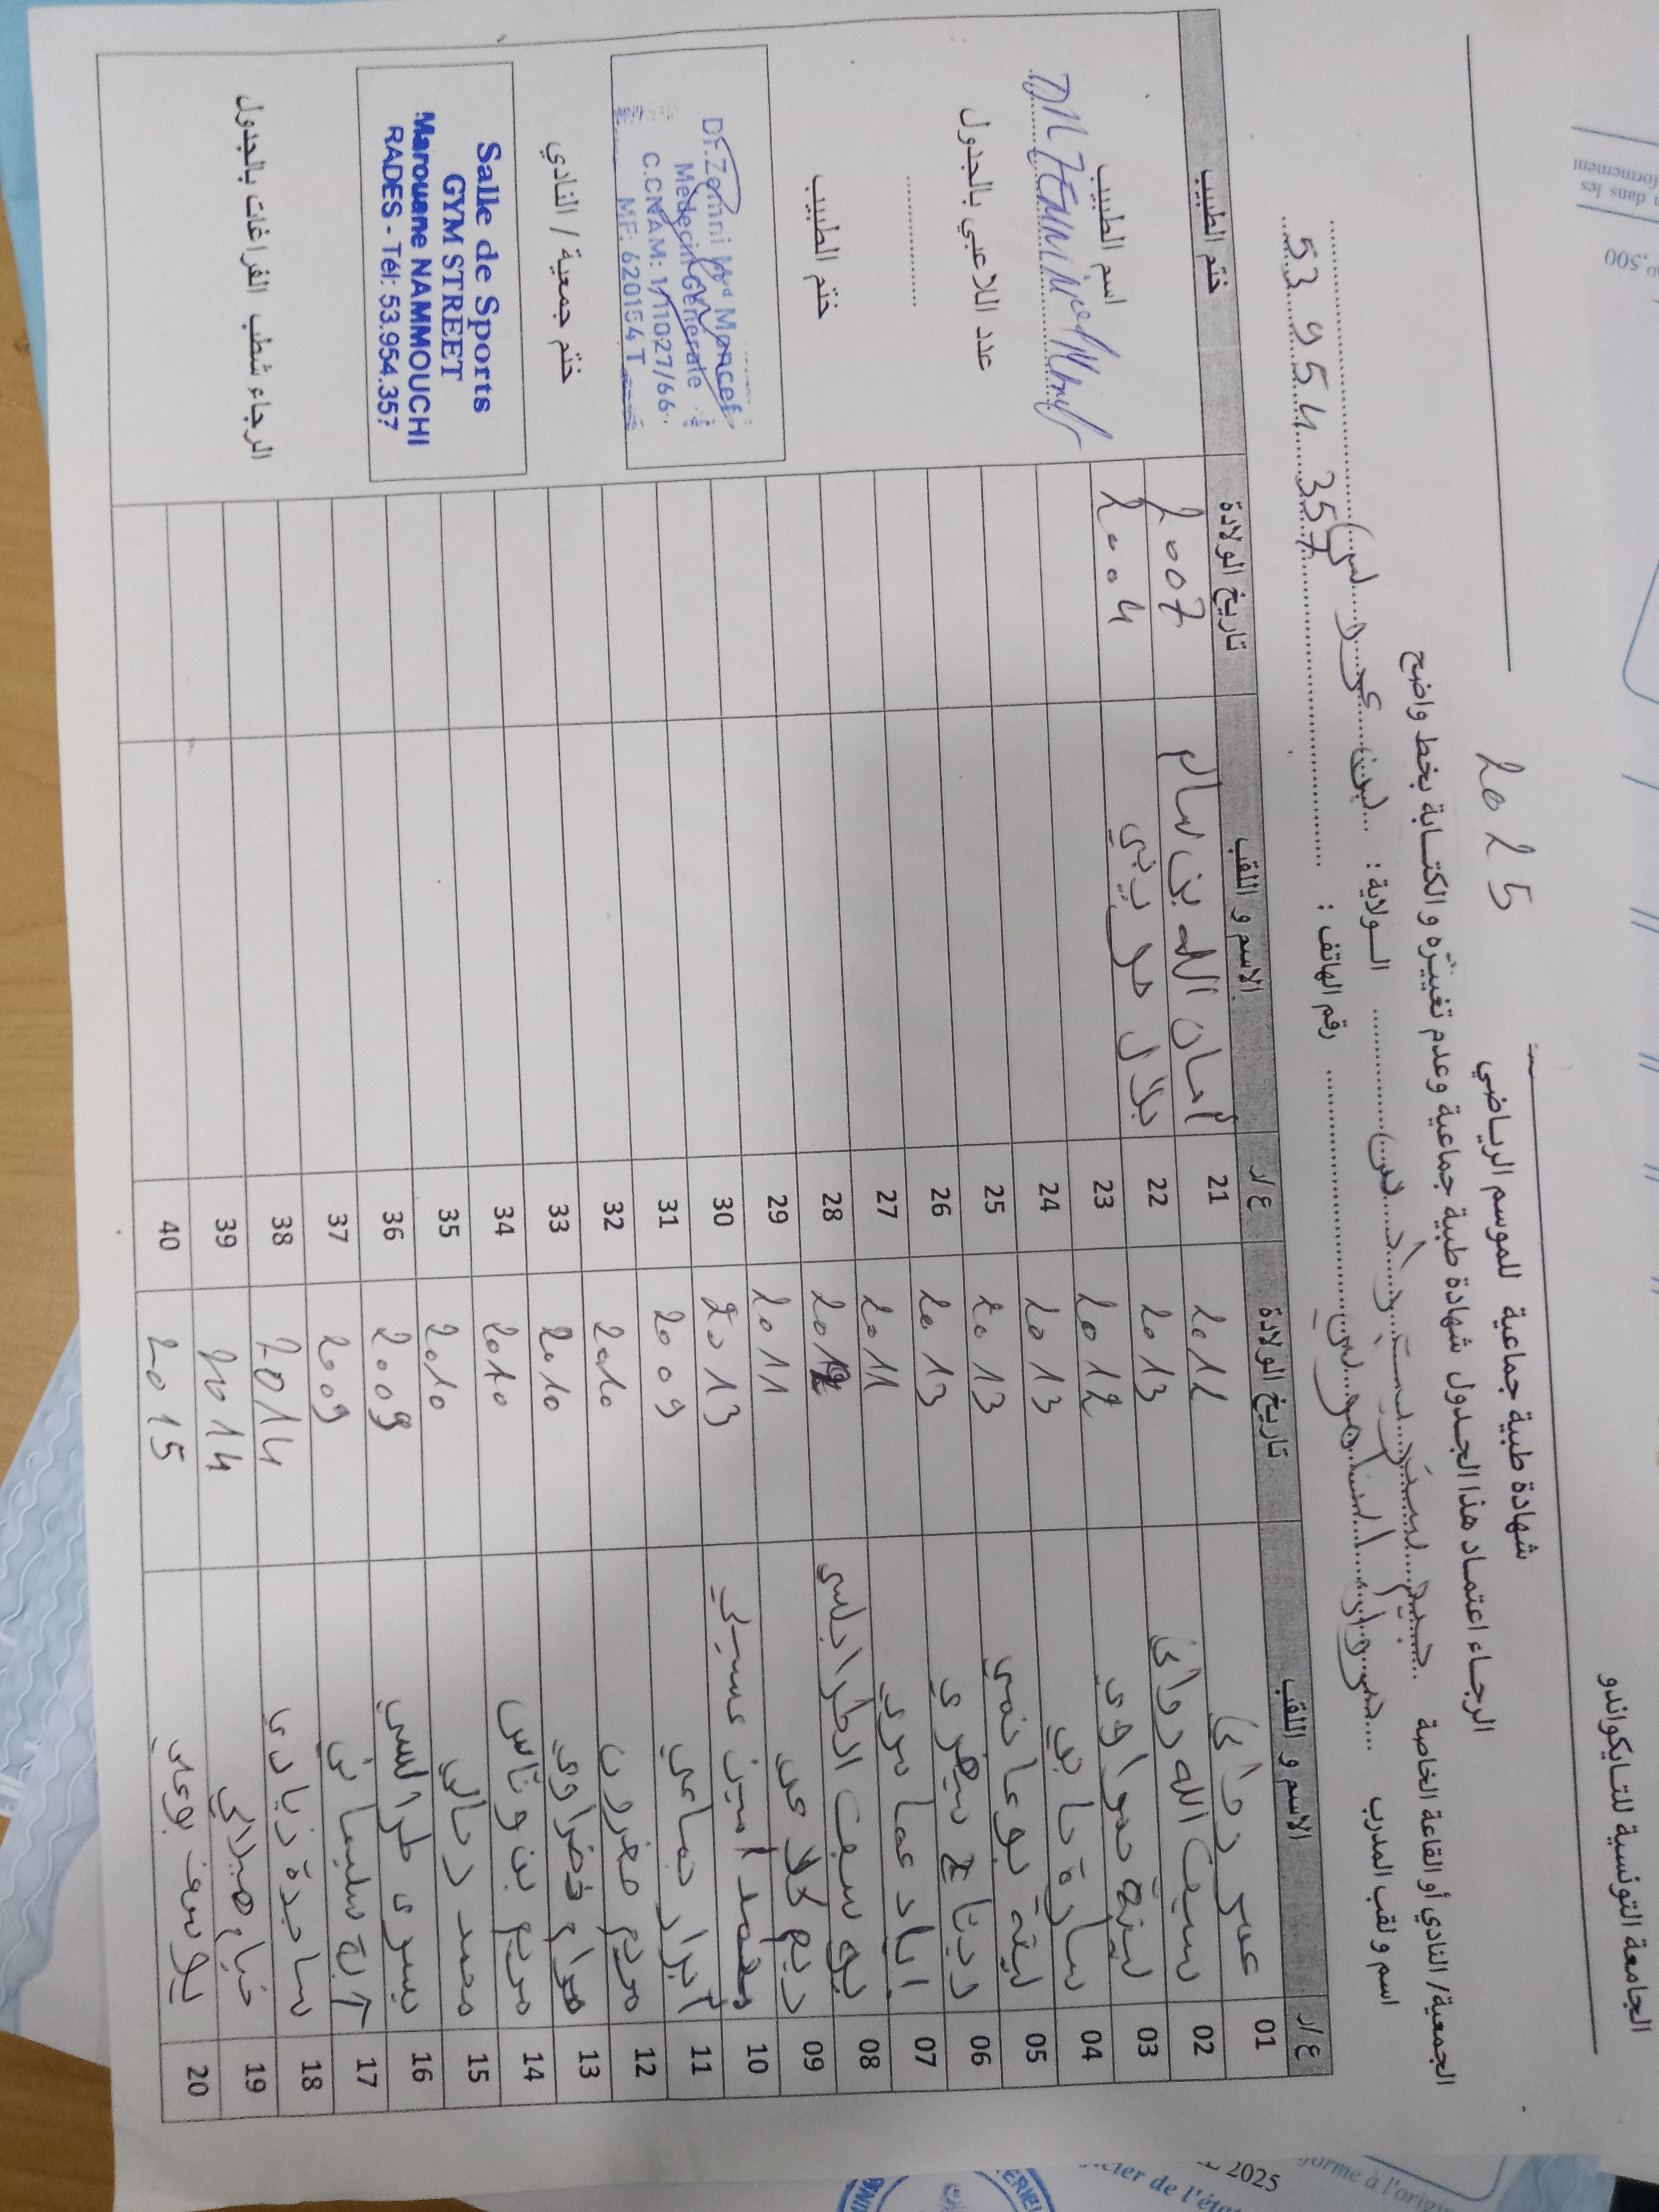 الجامعة التونسية للتايكواندو
شهادة طبية جماعية للموسم الرياضي 2025
الرجاء اعتماد هذا الجدول شهادة طبية جماعية وعدم تغييره والكتابة بخط واضح
الجمعية/ النادي أو القاعة الخاصة جيم ستريت رادس الولاية : بن عروس
اسم و لقب المدرب مروان النموشي رقم الهاتف : 53 954 357
ع/ر الاسم و اللقب تاريخ الولادة ع/ر الاسم و اللقب تاريخ الولادة ختم الطبيب
01 2012 21 أمان الله بن سالم 2007
02 سيف الله 2013 22 بلال 2004
03 2012 23
04 سارة 2013 24
05 2013 25
06 2013 26
07 اياد 2011 27
08 يوسف الطرابلسي 28
09 ريم 2011 29
10 محمد امين عسيلي 2013 30
11 أبرار جماعي 2009 31
12 مريم مغزون 2010 32
13 مرام خضراوي 2010 33
14 مريم بن وناس 2010 34
15 محمد رحالي 2010 35
16 يسرى طرابلسي 2009 36
17 أريج سليماني 2009 37
18 ساجدة زيادي 2014 38
19 2014 39
20 يوسف بوعلي 2015 40
اسم الطبيب
عدد اللاعبي بالجدول
ختم الطبيب
Dr. Zemni Med Moncef
Médecin Générale
C.CNAM: 1/11027/66
MF: 620154 T
ختم جمعية / النادي
Salle de Sports
GYM STREET
Marouane NAMMOUCHI
RADES - Tél: 53.954.357
الرجاء شطب الفراغات بالجدول
,500
dans les
2025